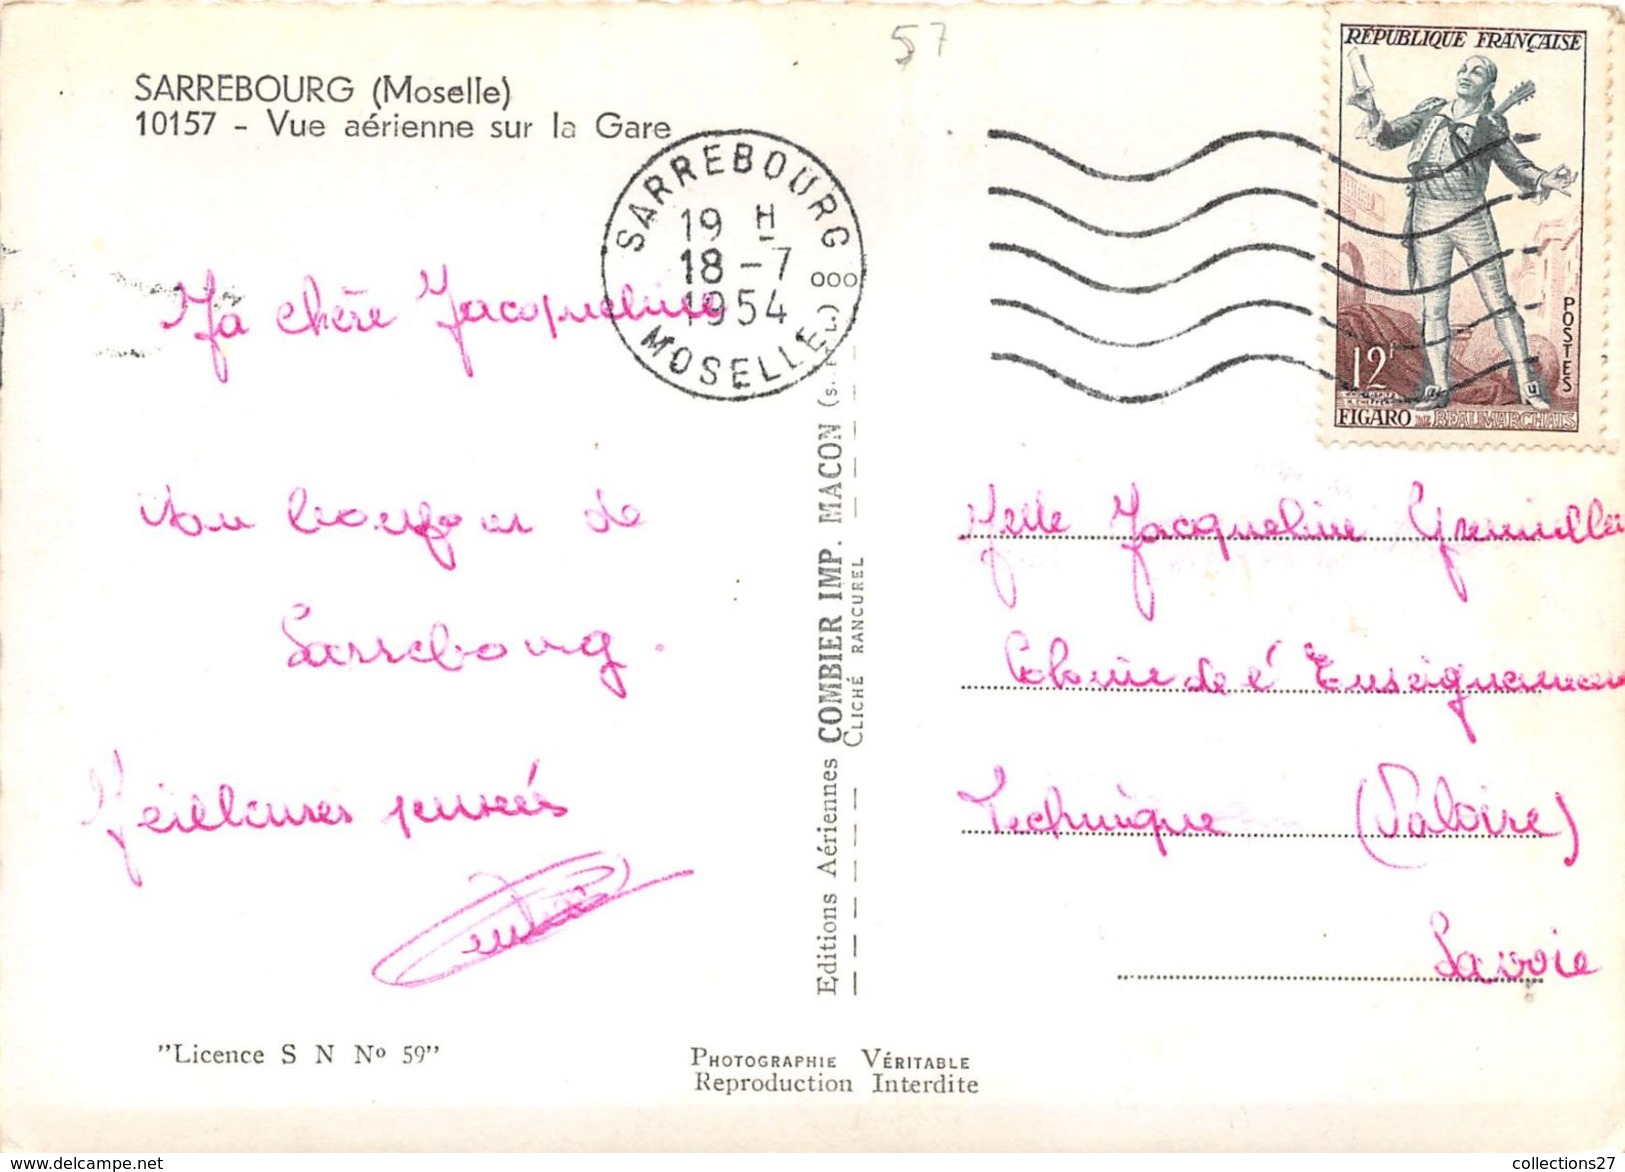 57
SARREBOURG (Moselle)
10157 - Vue aérienne sur la Gare
SARREBOURG
19 H
18 - 7
1954
MOSELLE
RÉPUBLIQUE FRANÇAISE
POSTES
12F
FIGARO DE BEAUMARCHAIS
Ma chère Jacqueline
Un bonjour de
Sarrebourg.
Meilleures pensées
Editions Aériennes COMBIER IMP. MACON
CLICHÉ RANCUREL
Melle Jacqueline
Colonie de l'Enseignement
Technique (Valoire)
Savoie
"Licence S N Nº 59"
PHOTOGRAPHIE VÉRITABLE
Reproduction Interdite
collections27